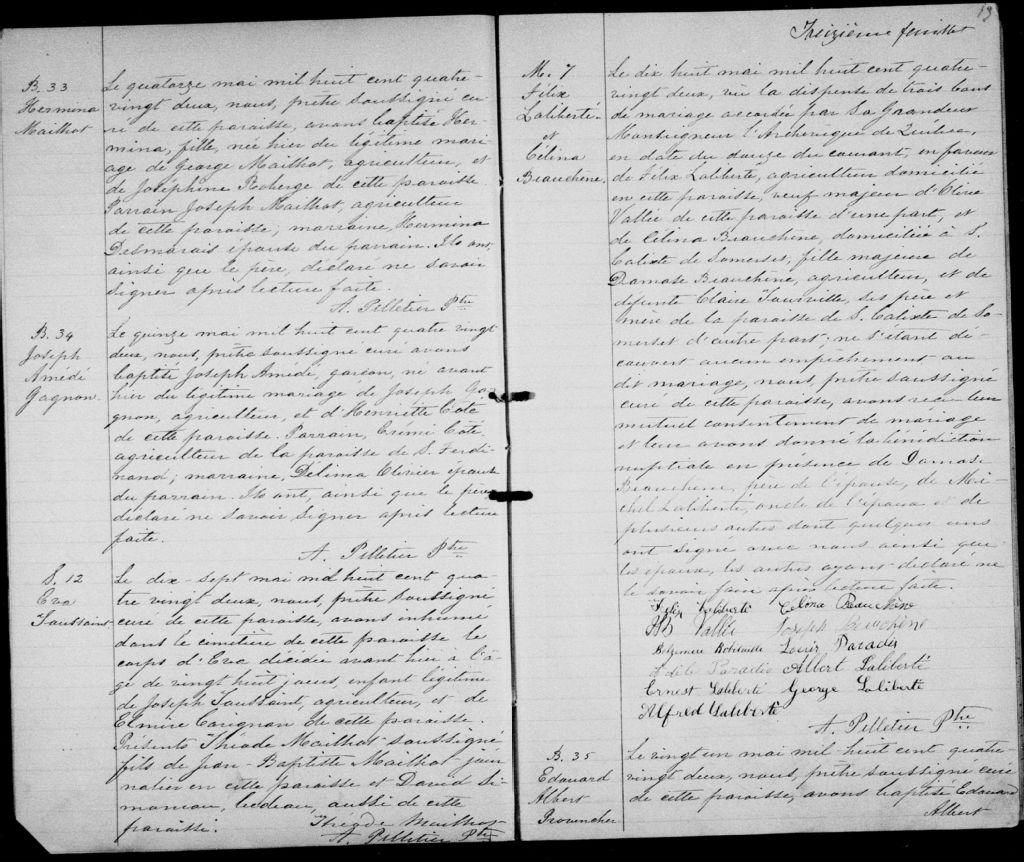 B. 33
Hermina
Mailhot
Le quatorze mai mil huit cent quatre-
vingt deux, nous, prêtre soussigné cu-
ré de cette paroisse, avons baptisé Her-
mina, fille, née hier du légitime mari-
age de George Mailhot, agriculteur, et
de Joséphine Roberge de cette paroisse.
Parrain Joseph Mailhot, agriculteur
de cette paroisse; marraine, Hermina
Desmarais épouse du parrain. Ils ont,
ainsi que le père, déclaré ne savoir
signer après lecture faite.
A. Pelletier Ptre
B. 34
Joseph
Amédé
Gagnon.
Le quinze mai mil huit cent quatre vingt
deux, nous, prêtre soussigné curé avons
baptisé Joseph Amédé, garçon, né avant
hier du légitime mariage de Joseph Ga-
gnon, agriculteur, et d'Henriette Coté
de cette paroisse. Parrain, Coté,
agriculteur de la paroisse de S. Ferdi-
nand; marraine, Délima épouse
du parrain. Ils ont, ainsi que le père
déclaré ne savoir signer après lecture
faite.
A. Pelletier Ptre
S. 12
Eva
Toussaint
Le dix-sept mai mil huit cent qua-
tre vingt deux, nous, prêtre soussigné
curé de cette paroisse, avons inhumé
dans le cimetière de cette paroisse le
corps d'Eva décédée avant hier à l'â-
ge de vingt huit jours, enfant légitime
de Joseph Toussaint, agriculteur, et de
Elmire Carignan de cette paroisse.
Présents Théode Mailhot soussigné
fils de Jean-Baptiste Mailhot jour-
nalier en cette paroisse et David Si-
moneau, bedeau, aussi de cette
paroisse.
Théode Mailhot
A. Pelletier Ptre
13
Treizième feuillet
M. 7
Félix
Laliberté
et
Célina
Beauchêne.
Le dix huit mai mil huit cent quatre-
vingt deux, vu la dispense de trois bans
de mariage accordée par Sa Grandeur
Monseigneur l'Archevêque de Québec,
en date du douze du courant, en faveur
de Félix Laliberté, agriculteur domicilié
en cette paroisse, veuf majeur d'
Vallée de cette paroisse d'une part, et
de Célina Beauchêne, domiciliée à S.
Calixte de Somerset, fille majeure de
Damase Beauchêne, agriculteur, et de
défunte Claire Tourville, ses père et
mère de la paroisse de S. Calixte de So-
merset d'autre part; ne s'étant dé-
couvert aucun empêchement au
dit mariage, nous, prêtre soussigné
curé de cette paroisse, avons reçu leur
mutuel consentement de mariage
et leur avons donné la bénédiction
nuptiale en présence de Damase
Beauchêne, père de l'épouse, de Mi-
chel Laliberté, oncle de l'époux et de
plusieurs autres dont quelques uns
ont signé avec nous ainsi que
les époux, les autres ayant déclaré ne
le savoir faire après lecture faite.
Félix Laliberté Celina Beauchêne
Vallée Joseph Beauchêne
Robitaille Louis Paradis
Adèle Paradis Albert Laliberté
Ernest Laliberté George Laliberté
Alfred Laliberté
A. Pelletier Ptre
B. 35
Edouard
Albert
Provencher
Le vingt un mai mil huit cent quatre-
vingt deux, nous, prêtre soussigné curé
de cette paroisse, avons baptisé Edouard
Albert